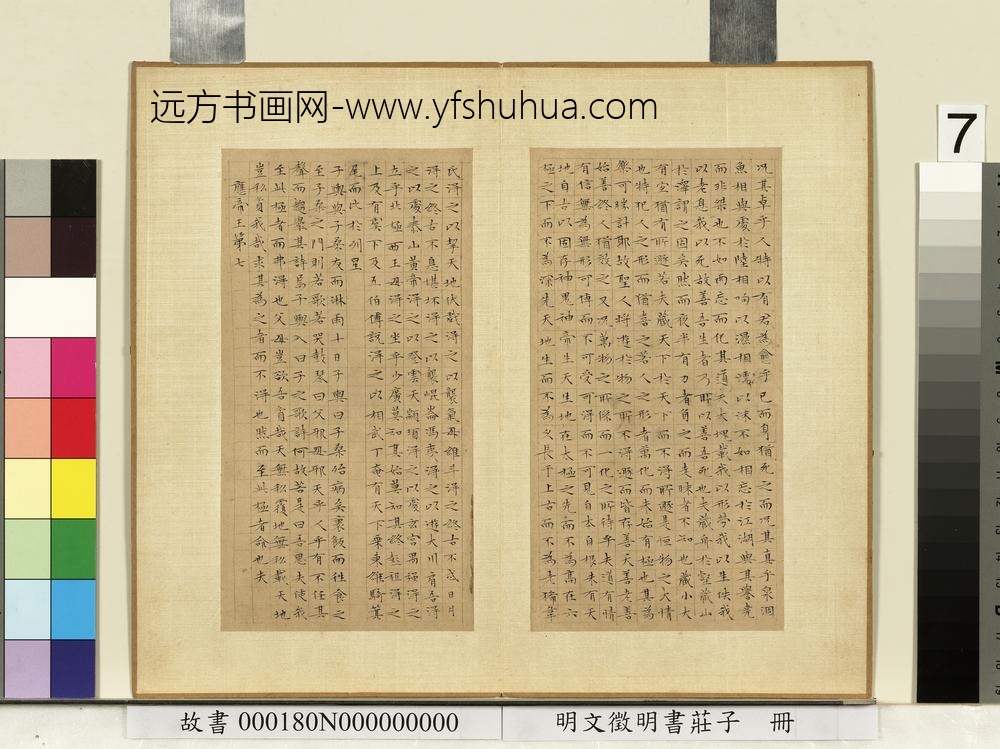 远方书画网-www.yfshuhua.com
7
况其卓乎人特以有君為愈乎己而身猶死之而况其真乎泉涸
魚相與處於陸相呴以濕相濡以沫不如相忘於江湖與其譽堯
而非桀也不如兩忘而化其道夫大塊載我以形勞我以生佚我
以老息我以死故善吾生者乃所以善吾死也夫藏舟於壑藏山
於澤謂之固矣然而夜半有力者負之而走昧者不知也藏小大
有宜猶有所遯若夫藏天下於天下而不得所遯是恒物之大情
也特犯人之形而猶喜之若人之形者萬化而未始有極也其為
樂可勝計耶故聖人將遊於物之所不得遯而皆存善夭善老善
始善終人猶效之又况萬物之所係而一化之所待乎夫道有情
有信無為無形可傳而不可受可得而不可見自本自根未有天
地自古以固存神鬼神帝生天生地在太極之先而不為高在六
極之下而不為深先天地生而不為久長于上古而不為老狶韋
氏得之以挈天地伏戲得之以襲氣母維斗得之終古不忒日月
得之終古不息堪坏得之以襲崐崙馮夷得之以遊大川肩吾得
之以處泰山黃帝得之以登雲天顓頊得之以處玄宮禺强得之
立乎北極西王母得之坐乎少廣莫知其始莫知其終彭祖得之
上及有虞下及五伯傅說得之以相武丁奄有天下乘東維騎箕
尾而比於列星
子輿與子桑友而淋雨十日子輿曰子桑殆病矣裹飯而往食之
至子桑之門則若歌若哭鼓琴曰父邪母邪天乎人乎有不任其
聲而趨舉其詩焉子輿入曰子之歌詩何故若是曰吾思夫使我
至此極者而弗得也父母豈欲吾貧哉天無私覆地無私載天地
豈私貧我哉求其為之者而不得也然而至此極者命也夫
應帝王第七
故書000180N000000000
明文徵明書莊子 冊